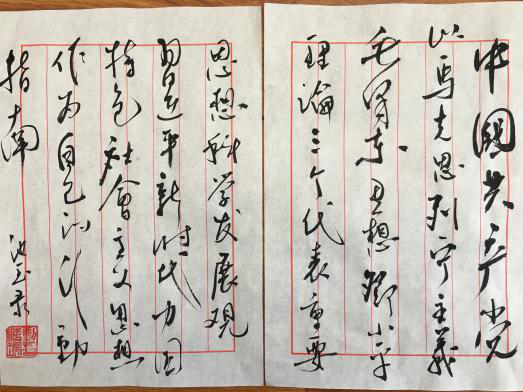 中國共产党
以馬克思列宁主義
毛泽东思想鄧小平
理論三个代表重要
思想科学发展观
習近平新时代中国
特色社會主义思想
作为自己的行動
指南
录